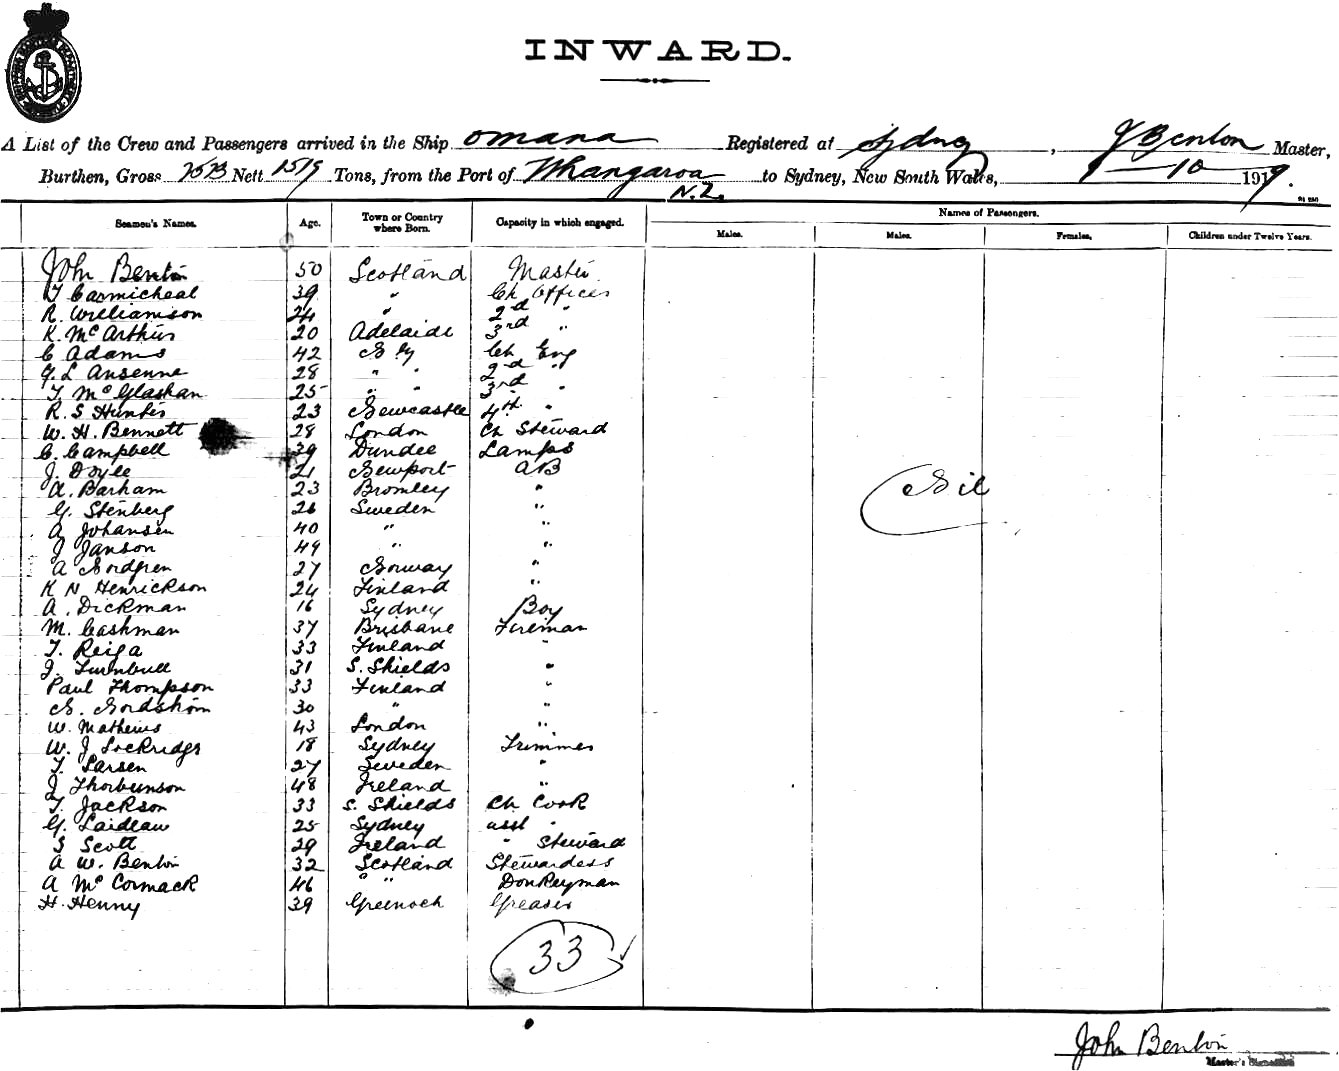 INWARD.
A List of the Crew and Passengers arrived in the Ship Omana Registered at Sydney, J Benton Master,
Burthen, Gross Nett 1519 Tons, from the Port of Whangaroa N.Z. to Sydney, New South Wales, 1 — 10 1919.
Names of Passengers.
Seamen's Names. Age. Town or Country where Born. Capacity in which engaged. Males. Males. Females. Children under Twelve Years.
John Benton 50 Scotland Master
T Carmicheal 39 " Ch Officer
R. Williamson 24 " 2nd "
K. McArthur 20 Adelaide 3rd "
C Adams 42 Sy Ch Eng
G. L Ansenne 28 " " 2nd "
T. McGlashan 25 " " 3rd "
R. S Hunter 23 Newcastle 4th "
W. H. Bennett 28 London Ch Steward
C. Campbell 39 Dundee Lamps
J. Doyle 21 Newport AB
A. Barham 23 Bromley "
G. Stenberg 26 Sweden "
A Johansen 40 " "
J Janson 49 " "
A Nordgren 27 Norway "
K N Henrickson 24 Finland "
A. Dickman 16 Sydney Boy
M. Cashman 37 Brisbane Fireman
T. Reiga 33 Finland "
J. Turnbull 31 S. Shields "
Paul Thompson 33 Finland "
N. Nordstrom 30 " "
W. Mathews 43 London "
W. J Lockridge 18 Sydney Trimmer
T. Larsen 27 Sweden "
J Thorbunson 48 Ireland "
T. Jackson 33 S. Shields Ch Cook
G. Laidlaw 25 Sydney asst "
S Scott 29 Ireland " Steward
A W. Benton 32 Scotland Stewardess
A McCormack 46 " " Donkeyman
H. Henny 39 Greenock Greaser
Nil
33
John Benton
Master's Signature